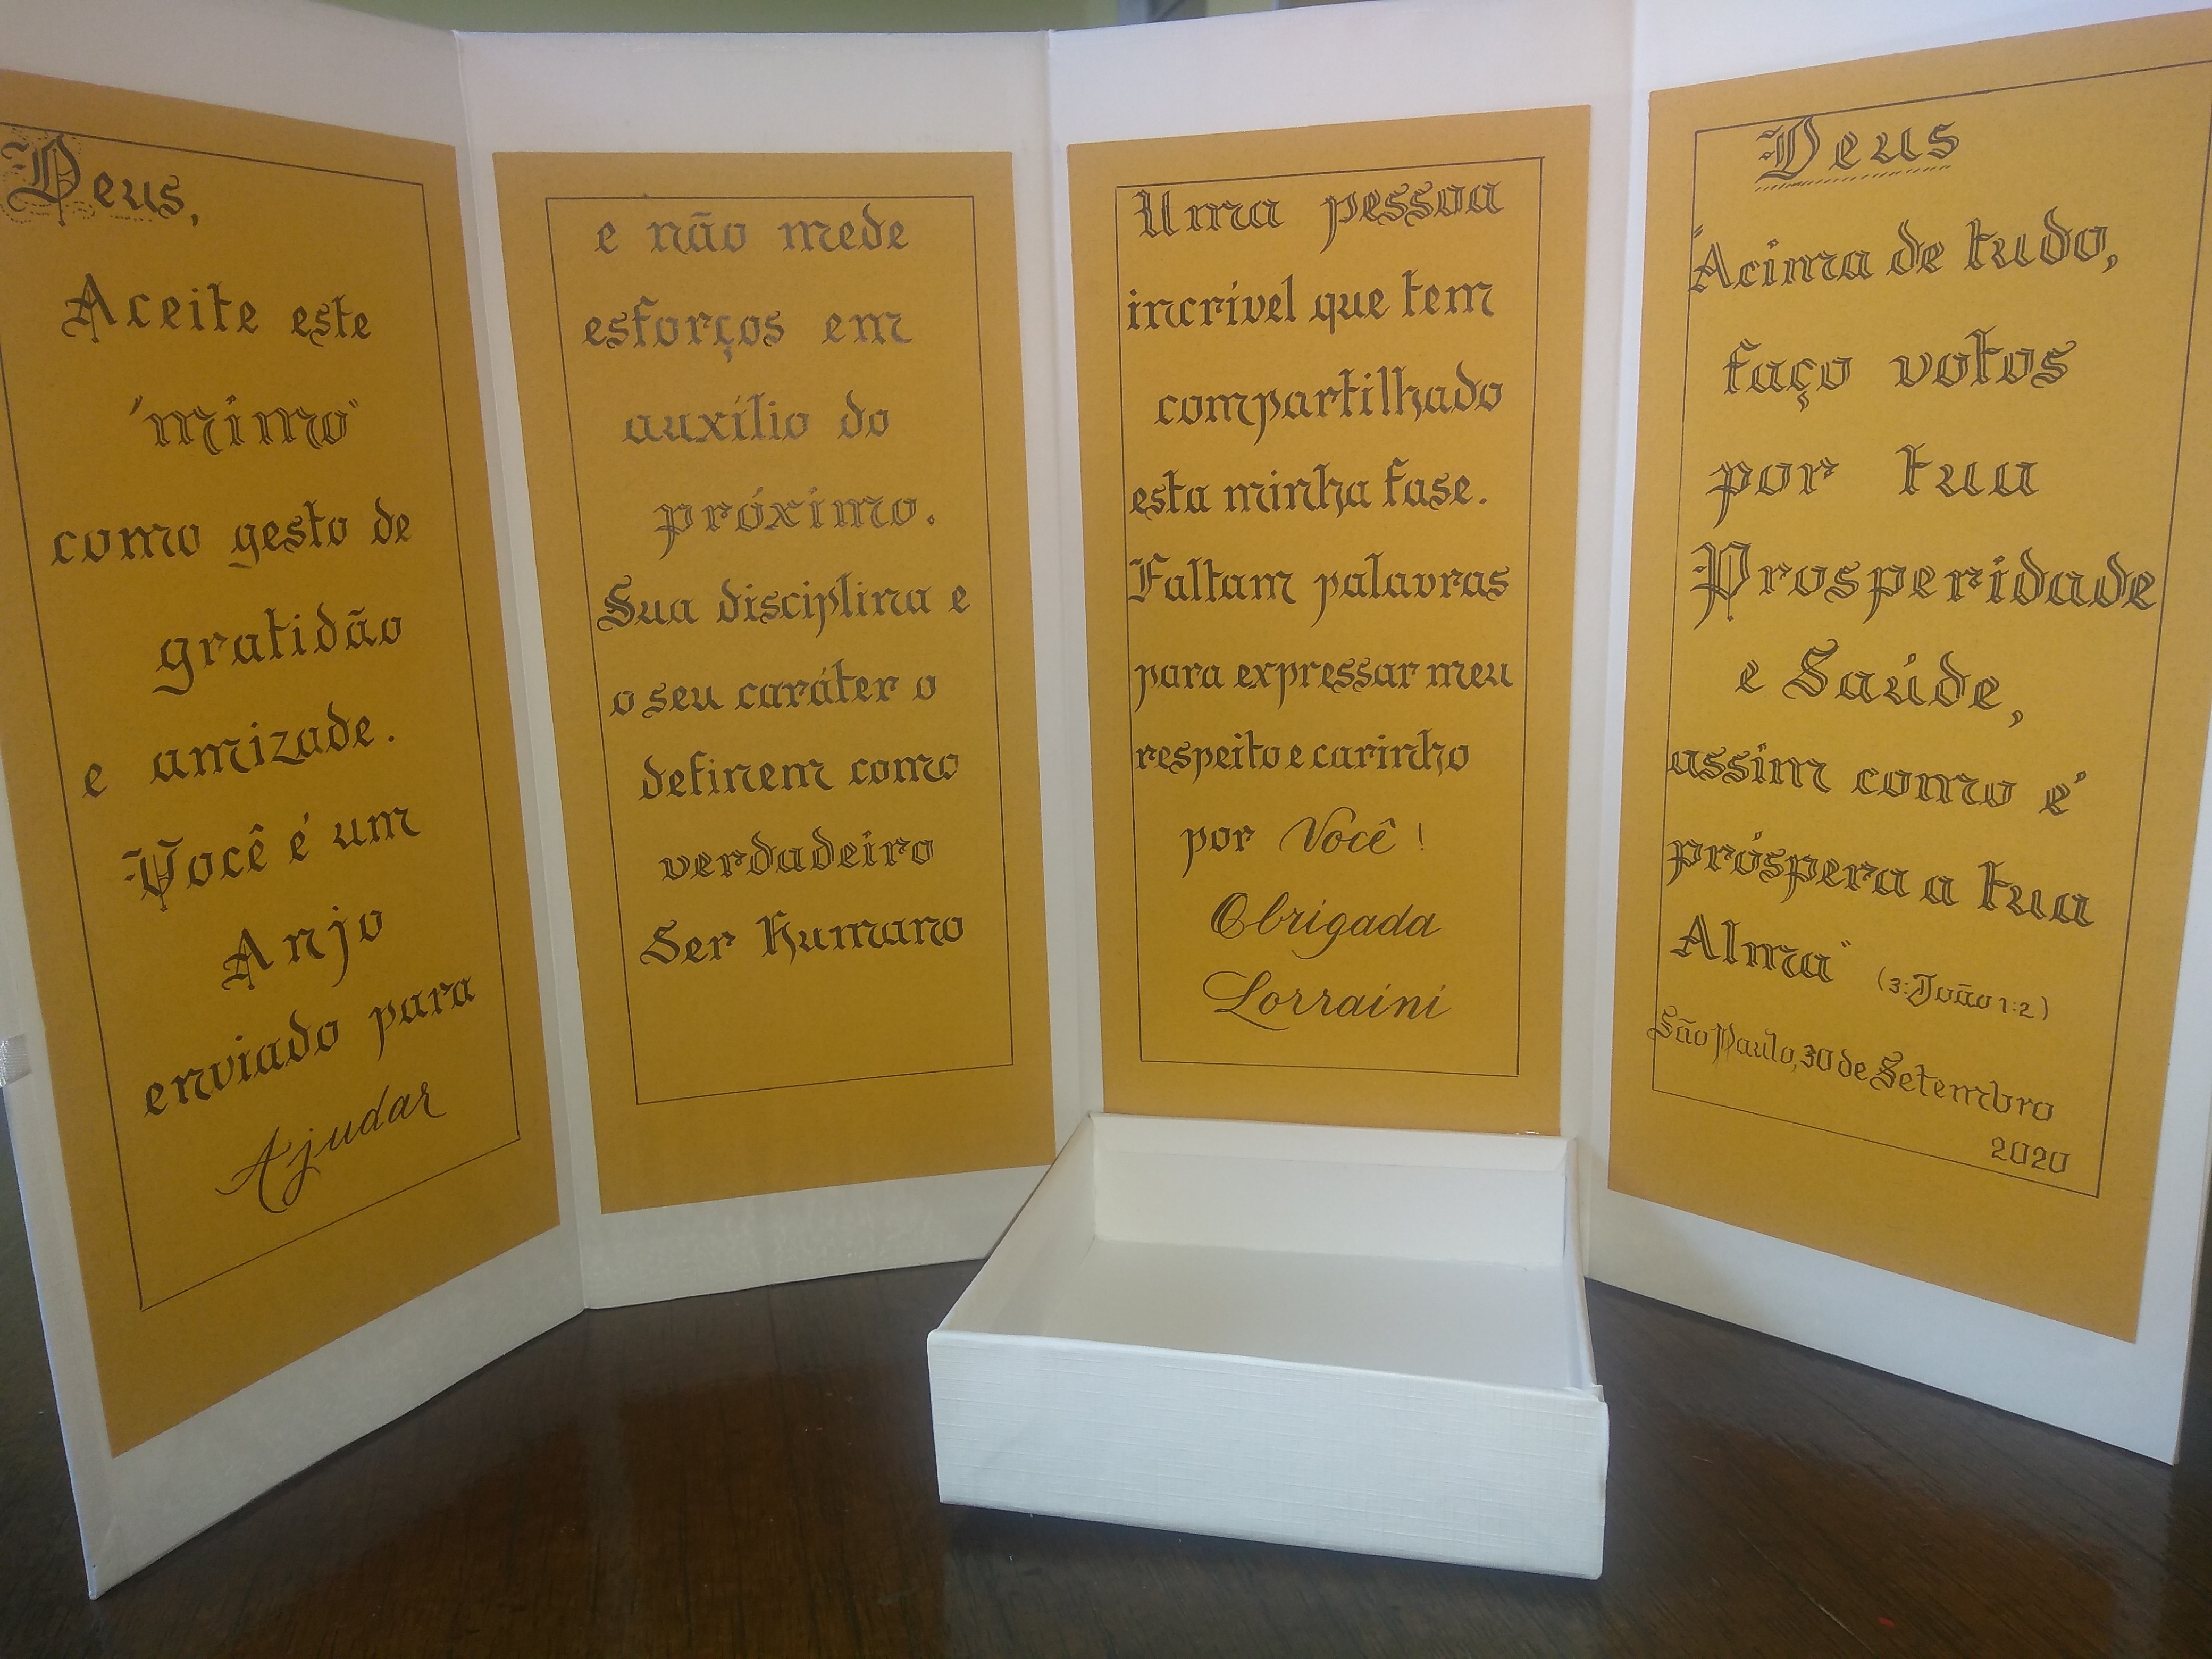 Deus,
Aceite este
"mimo"
como gesto de
gratidão
e amizade.
Você é um
Anjo
enviado para
Ajudar
e não mede
esforços em
auxílio do
próximo.
Sua disciplina e
o seu caráter o
definem como
verdadeiro
Ser Humano
Uma pessoa
incrível que tem
compartilhado
esta minha fase.
Faltam palavras
para expressar meu
respeito e carinho
por Você!
Obrigada
Lorraini
Deus
"Acima de tudo,
faço votos
por tua
Prosperidade
e Saúde,
assim como é
próspera a tua
Alma" (3:João 1:2)
São Paulo, 30 de Setembro
2020